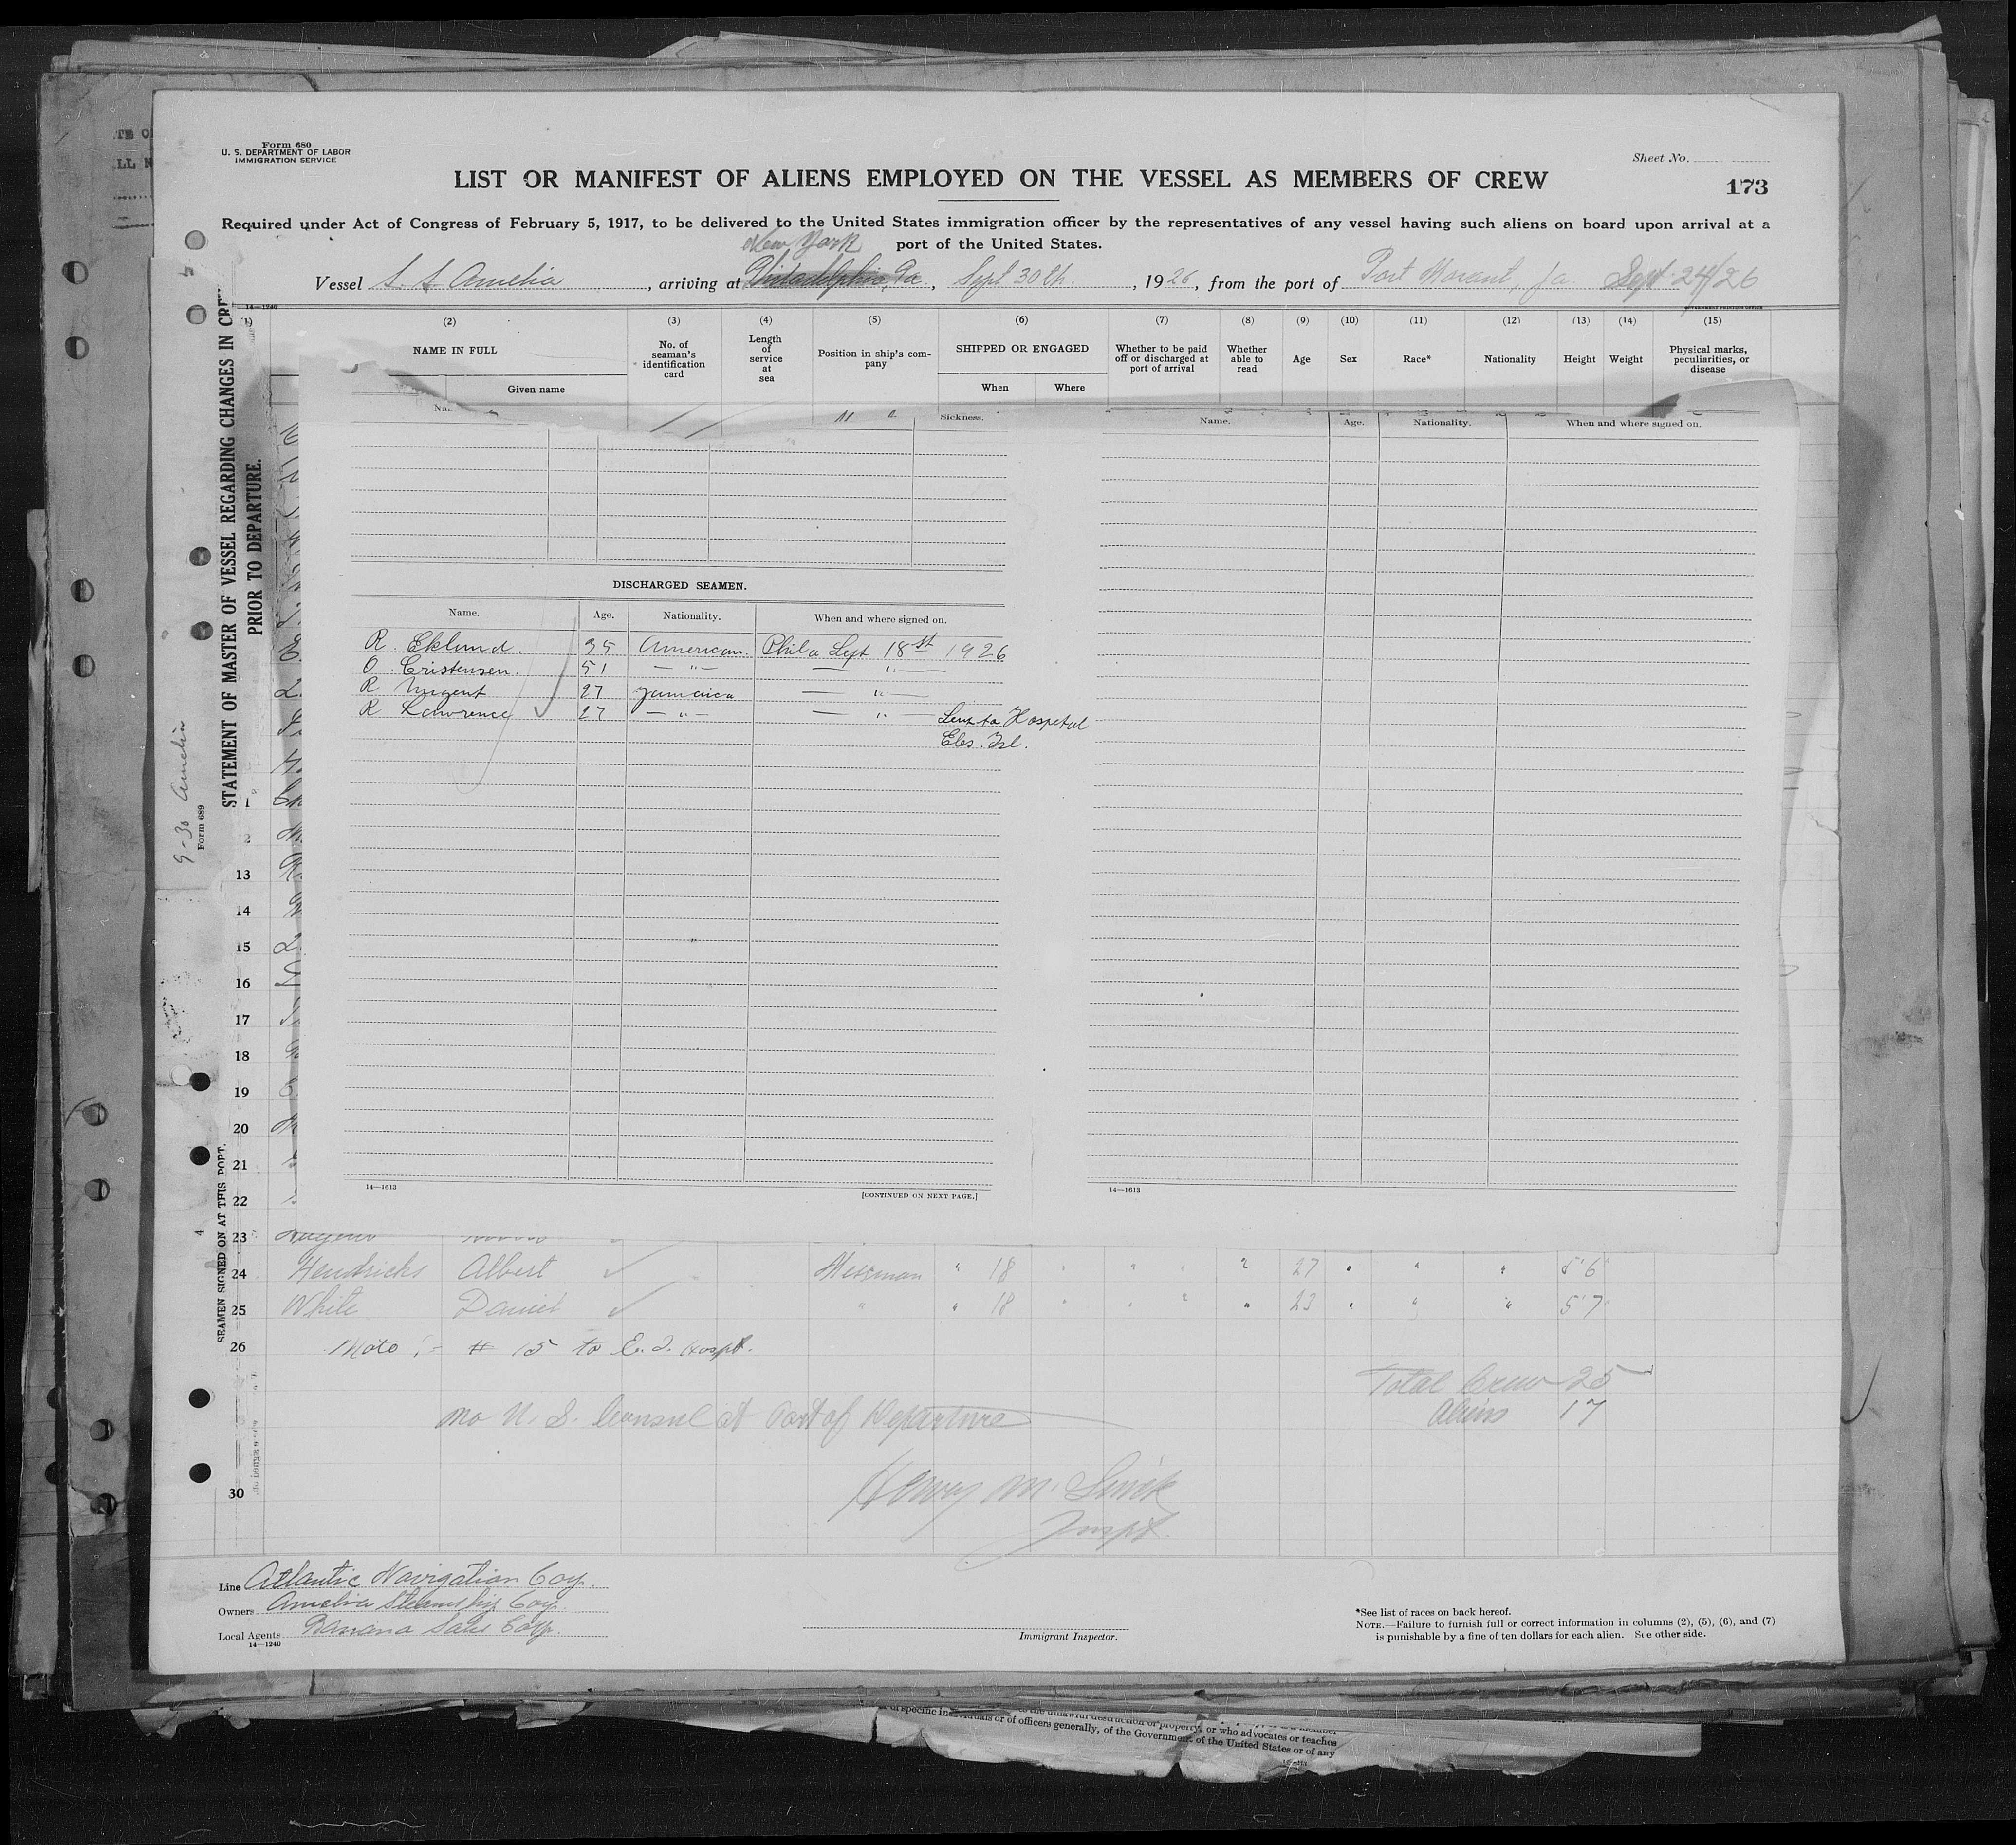 Form 680
U. S. DEPARTMENT OF LABOR
IMMIGRATION SERVICE
Sheet No.
LIST OR MANIFEST OF ALIENS EMPLOYED ON THE VESSEL AS MEMBERS OF CREW
173
Required under Act of Congress of February 5, 1917, to be delivered to the United States immigration officer by the representatives of any vessel having such aliens on board upon arrival at a
port of the United States.
New York
Vessel S. S. Amelia, arriving at Philadelphia, Pa., Sept 30th, 1926, from the port of Port Morant, Ja. Sept 24/26
14—1240
(1) (2) (3) (4) (5) (6) (7) (8) (9) (10) (11) (12) (13) (14) (15)
NAME IN FULL
Given name
No. of seaman's identification card
Length of service at sea
Position in ship's company
SHIPPED OR ENGAGED
When Where
Whether to be paid off or discharged at port of arrival
Whether able to read
Age
Sex
Race*
Nationality
Height
Weight
Physical marks, peculiarities, or disease
STATEMENT OF MASTER OF VESSEL REGARDING CHANGES IN CRE
PRIOR TO DEPARTURE.
9-30 Amelia
Form 689
Sickness.
Name. Age. Nationality. When and where signed on.
DISCHARGED SEAMEN.
Name. Age. Nationality. When and where signed on.
R. Eklund. 35 American. Phila Sept 18st 1926
O Cristensen. 51 — " — — " —
R Nugent 27 Jamaica — " —
R Lawrence 27 — " — — " — Sent to Hospetal
Eles. Isl.
13
14
15
16
17
18
19
20
21
22
14—1613
[CONTINUED ON NEXT PAGE.]
14—1613
SEAMEN SIGNED ON AT THIS PORT.
4
23
24 Hendricks Albert Messman " 18 " " " " 27 " " " 5'6
25 White Daniel " " 18 " " " " 23 " " " 5'7
26 Note :- # 15 to E. I. Hospt.
Total Crew 25
Aliens 17
No U. S. Consul at Port of Departure
30
Henry M.
Inspt.
Line Atlantic Navigation Coy.
Owners Amelia Steamship Coy.
Local Agents Banana Sales Corp.
14—1240
Immigrant Inspector.
*See list of races on back hereof.
NOTE.—Failure to furnish full or correct information in columns (2), (5), (6), and (7)
is punishable by a fine of ten dollars for each alien. See other side.
or of officers generally, of the Government of the United States or of any
or property, or who advocates or teaches